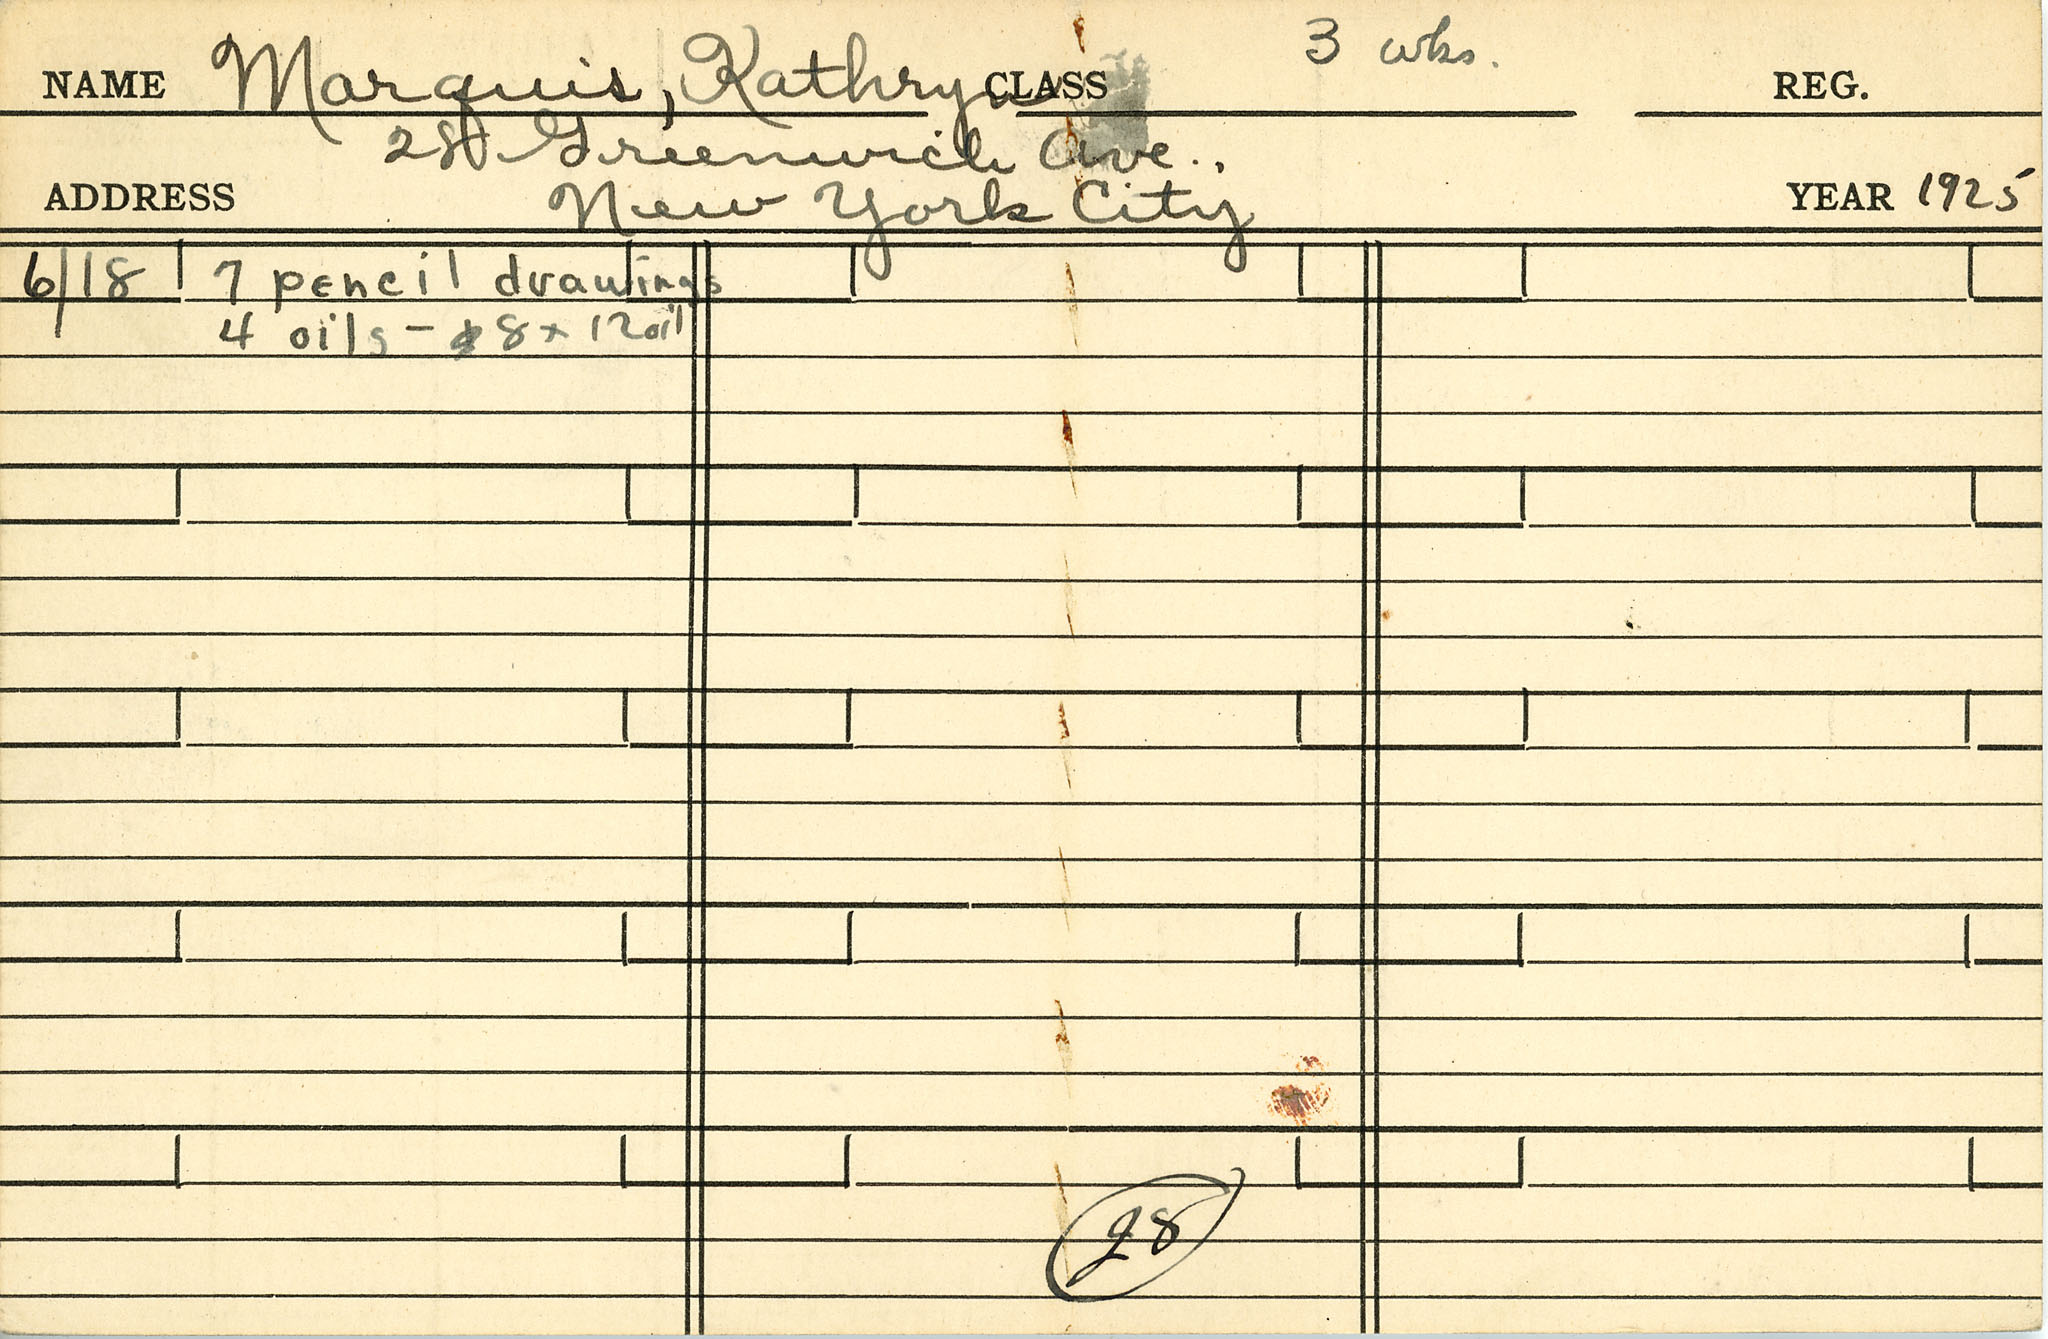 NAME Marquis, Kathryn CLASS 3 wks. REG.
28 Greenwich Ave.,
ADDRESS New York City YEAR 1925
6/18 7 pencil drawings
4 oils - 8 x 12 oil
28